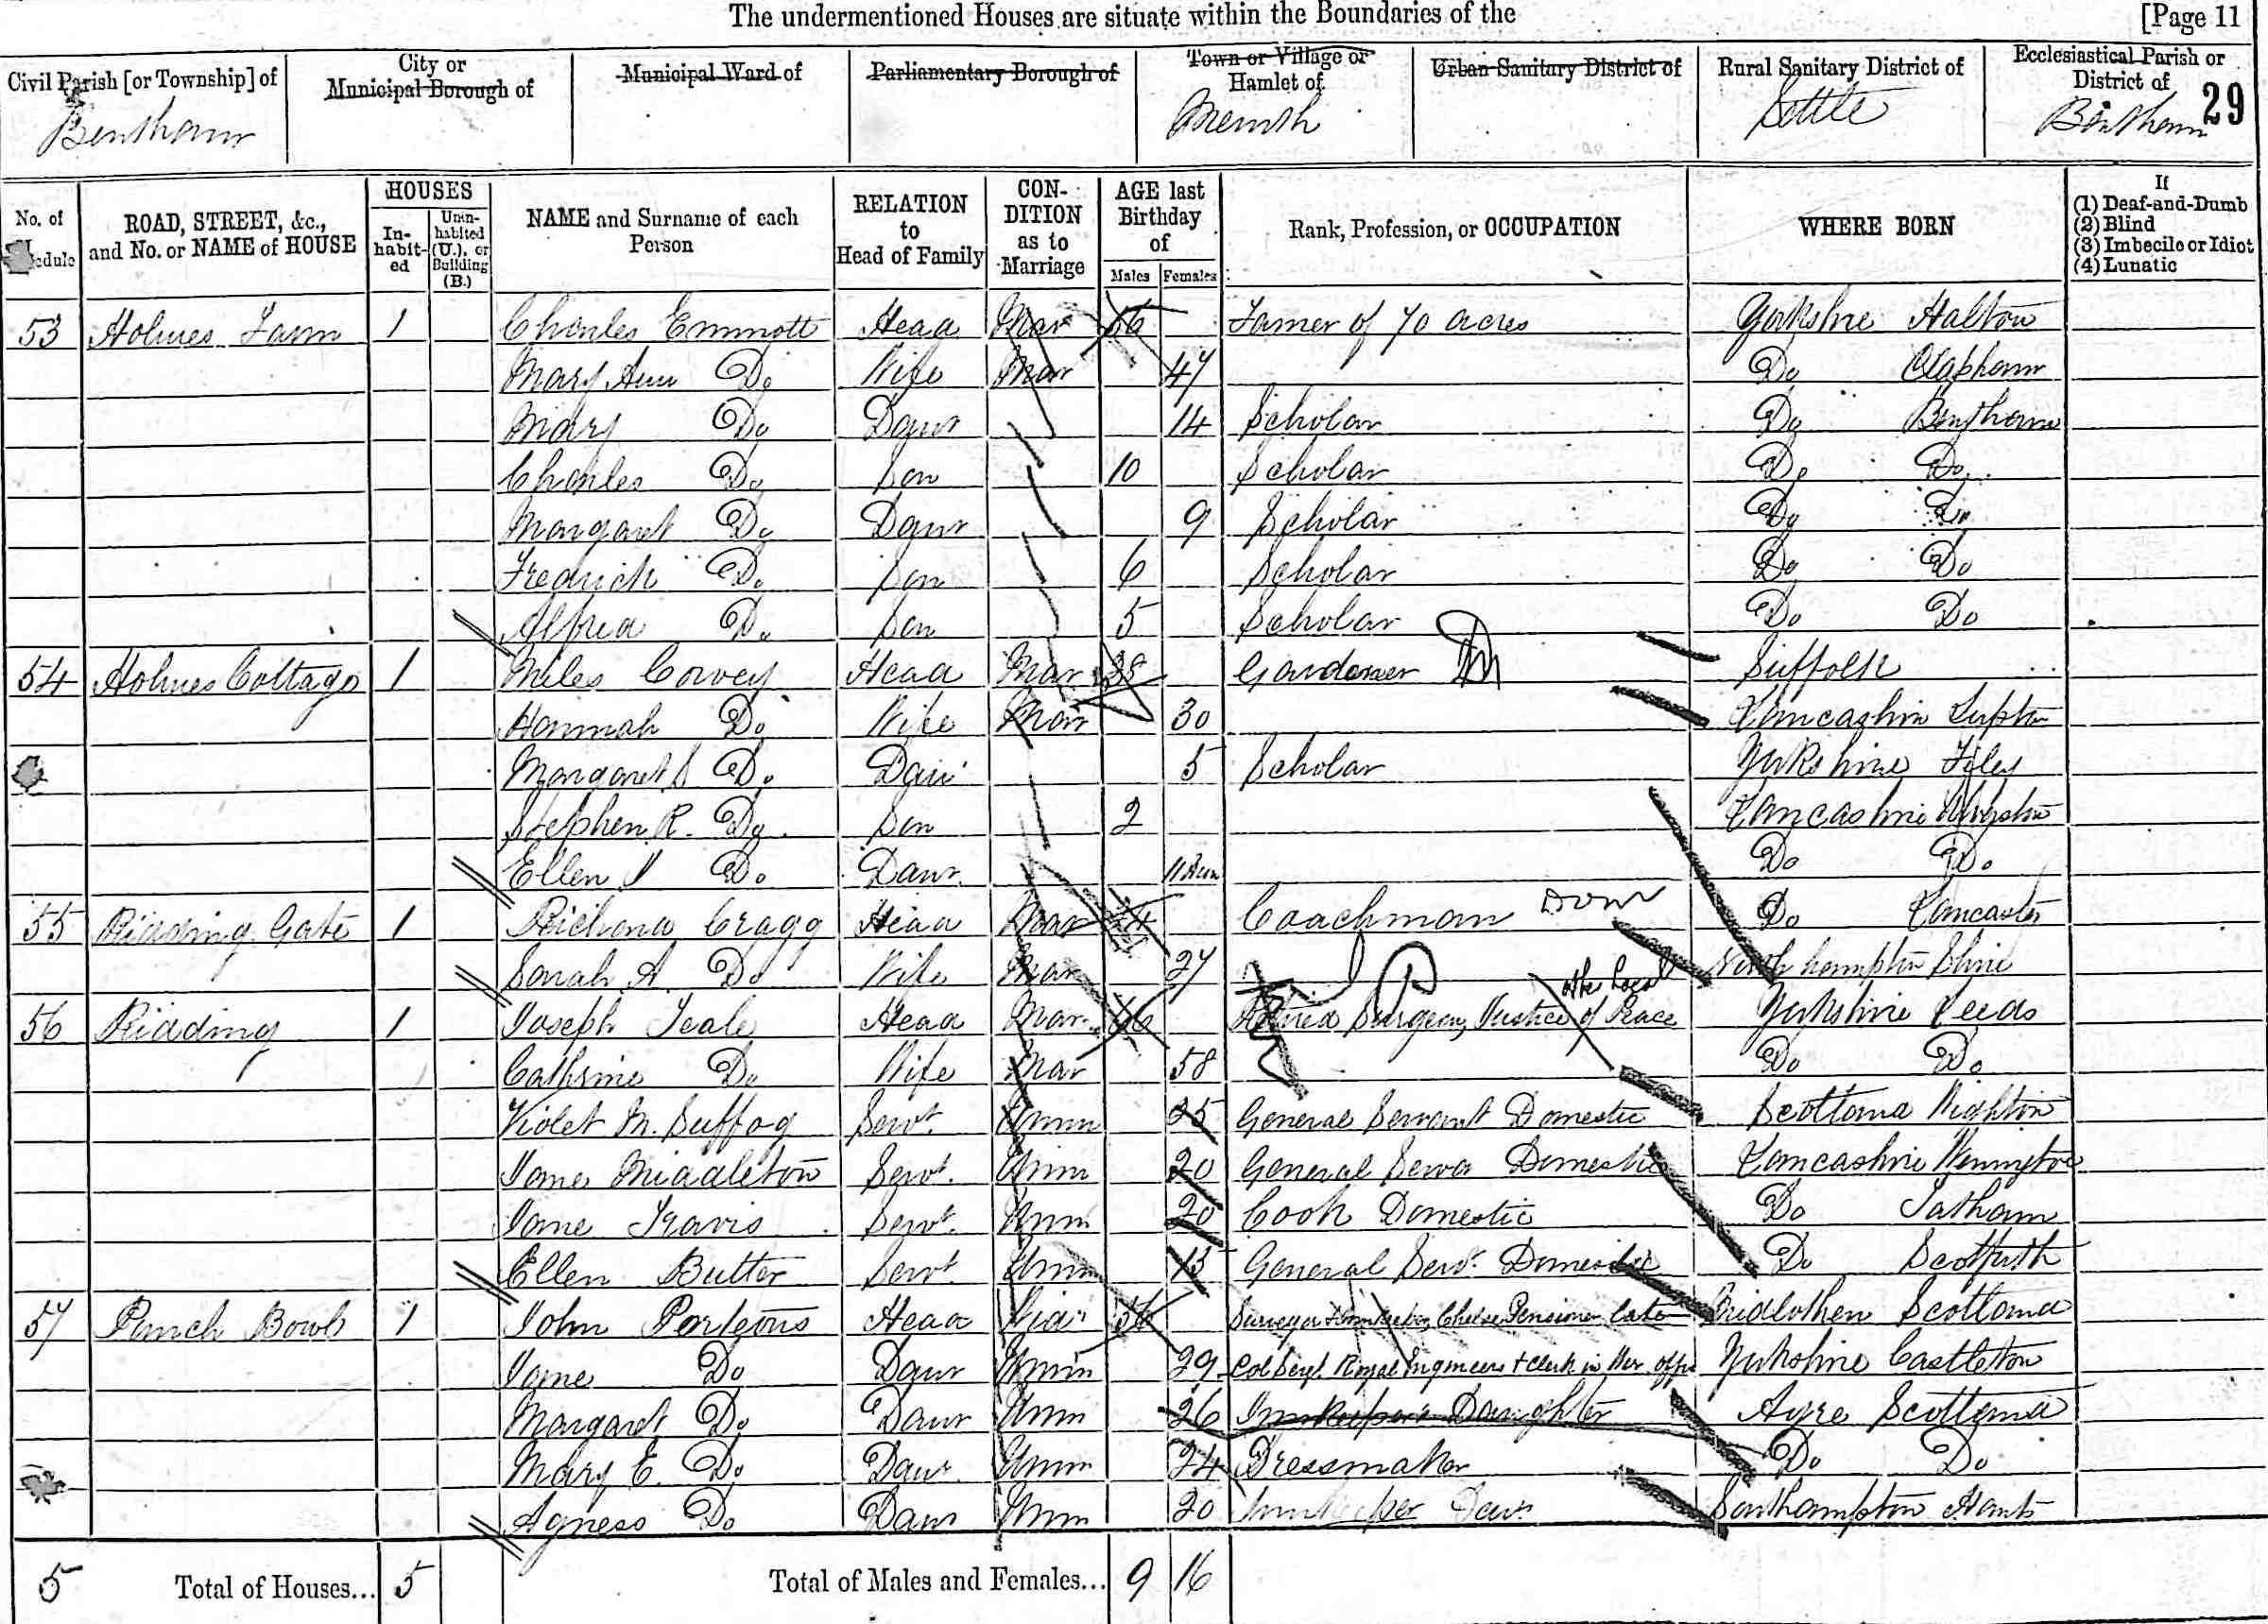 The undermentioned Houses are situate within the Boundaries of the [Page 11
Civil Parish [or Township] of Bentham
City or Municipal Borough of
Municipal Ward of
Parliamentary Borough of
Town or Village or Hamlet of
Urban Sanitary District of
Rural Sanitary District of Settle
Ecclesiastical Parish or District of Bentham
29
No. of
ROAD, STREET, &c., and No. or NAME of HOUSE
HOUSES
In-habit-ed
Unin-habited (U.), or Building (B.)
NAME and Surname of each Person
RELATION to Head of Family
CON-DITION as to Marriage
AGE last Birthday of
Males Females
Rank, Profession, or OCCUPATION
WHERE BORN
If
(1) Deaf-and-Dumb
(2) Blind
(3) Imbecile or Idiot
(4) Lunatic
53 Holmes Farm 1 Charles Emmott Head Mar 56 Farmer of 70 acres Yorkshire Halton
Mary Ann Do Wife Mar 47 Do Clapham
Mary Do Daur 14 Scholar Do Bentham
Charles Do Son 10 Scholar Do Do
Margaret Do Daur 9 Scholar Do Do
Fredrick Do Son 6 Scholar Do Do
Alfred Do Son 5 Scholar Do Do
54 Holmes Cottage 1 Miles Covey Head Mar 38 Gardener Suffolk
Hannah Do Wife Mar 30 Lancashire
Margaret S Do Daur 5 Scholar Yorkshire Filey
Stephen R. Do Son 2 Lancashire Ulverston
Ellen Do Daur Do Do
55 Ridding Gate 1 Richard Cragg Head Mar Coachman Dom Do Lancaster
Sarah A Do Wife Mar 27 Northampton Shire
56 Ridding 1 Joseph Teale Head Mar 66 Retired Surgeon, Justice of Peace Yorkshire Leeds
Cathrine Do Wife Mar 58 Do Do
Violet M. Suffog Servt. Unm 25 General Servant Domestic Scotland
Middleton Servt. Unm 20 General Serva Domestic Lancashire Wennington
Jane Travis Servt. Unm 20 Cook Domestic Do Tatham
Ellen Butter Servt. Unm 15 General Servt. Domestic Do Scotforth
57 Punch Bowl 1 John Porteous Head Widr 56 Surveyor + Innkeeper, Chelsea Pensioner late Midlothen Scotland
Jane Do Daur Unm 29 Col Serjt. Royal Engineers + Clerk in War offi Yorkshire Castleton
Margaret Do Daur Unm 26 Innkeepers Daughter Ayre Scotland
Mary E. Do Daur Unm 24 Dressmaker Do Do
Agness Do Daur Unm 20 Innkeeper Daur Southampton Hants
5 Total of Houses... 5 Total of Males and Females... 9 16